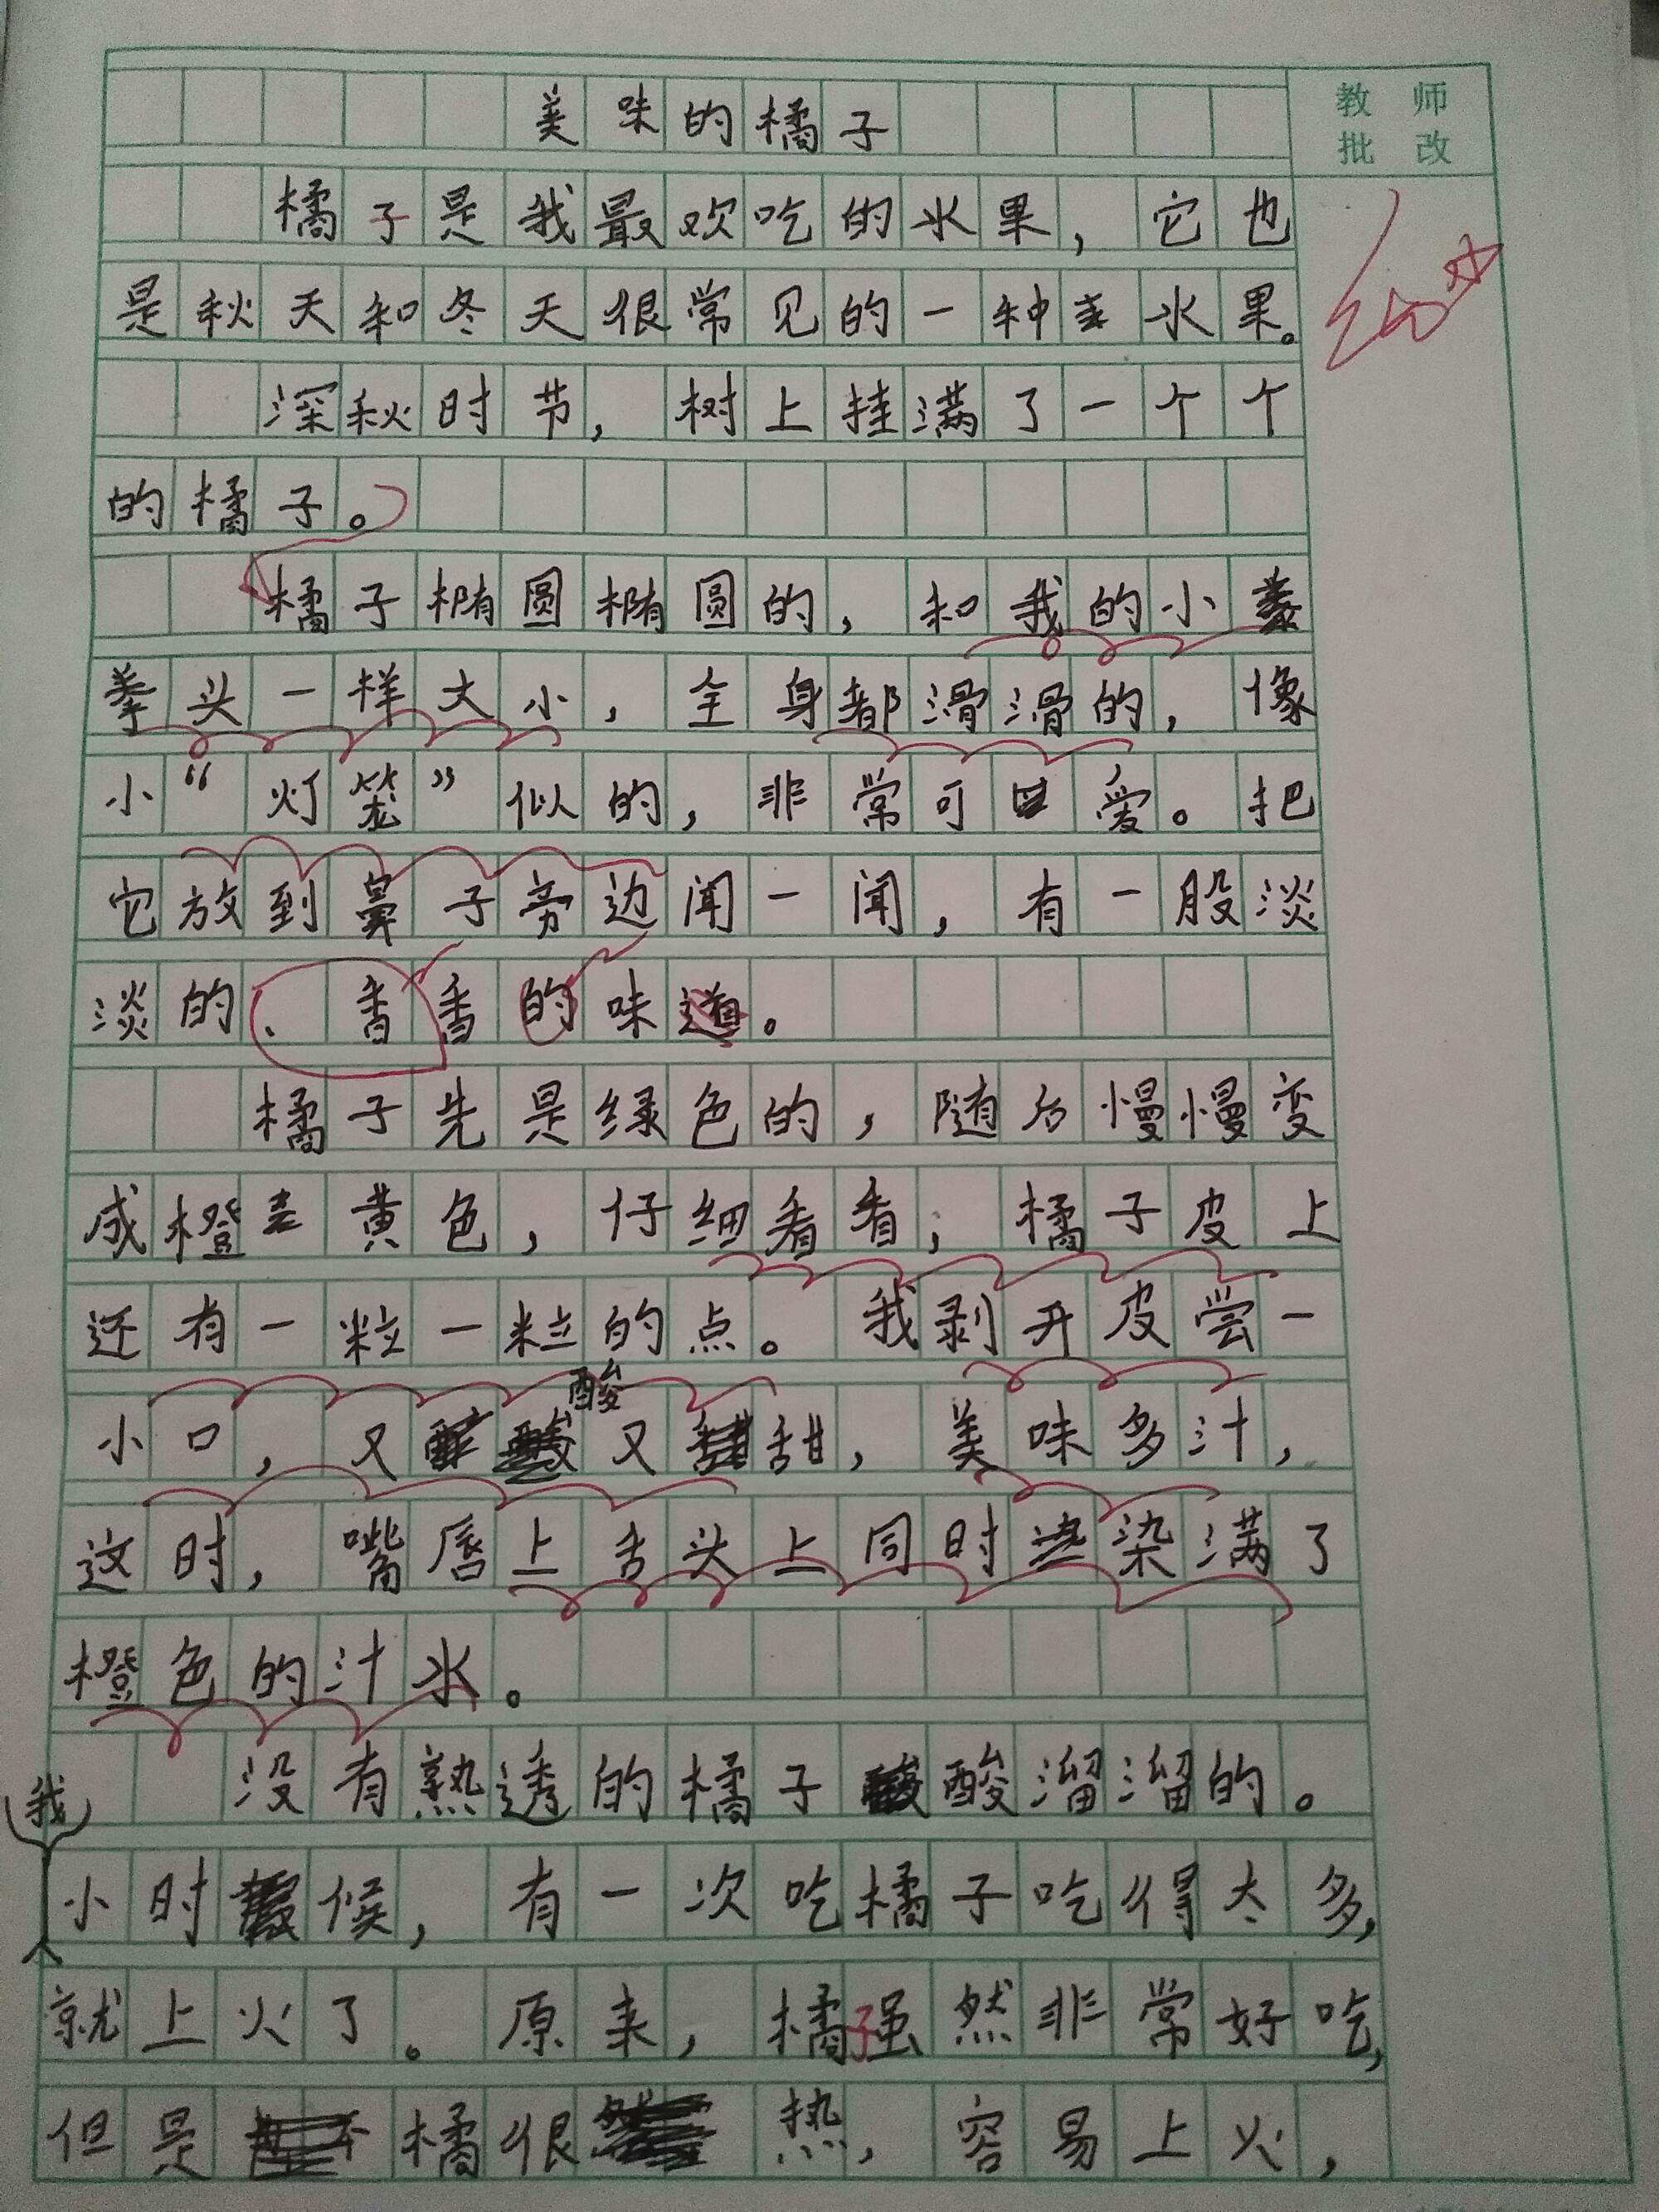 美味的橘子
教师
批改
橘子是我最欢吃的水果，它也
是秋天和冬天很常见的一种水果。
深秋时节，树上挂满了一个个
的橘子。
橘子椭圆椭圆的，和我的小
拳头一样大小，全身都滑滑的，像
小“灯笼”似的，非常可爱。把
它放到鼻子旁边闻一闻，有一股淡
淡的、香香的味道。
橘子先是绿色的，随后慢慢变
成橙黄色，仔细看看，橘子皮上
还有一粒一粒的点。我剥开皮尝一
酸
小口，又又甜，美味多汁，
这时，嘴唇上舌头上同时染满了
橙色的汁水。
没有熟透的橘子酸溜溜的。
我
小时候，有一次吃橘子吃得太多，
就上火了。原来，橘子虽然非常好吃，
但是橘很热，容易上火，